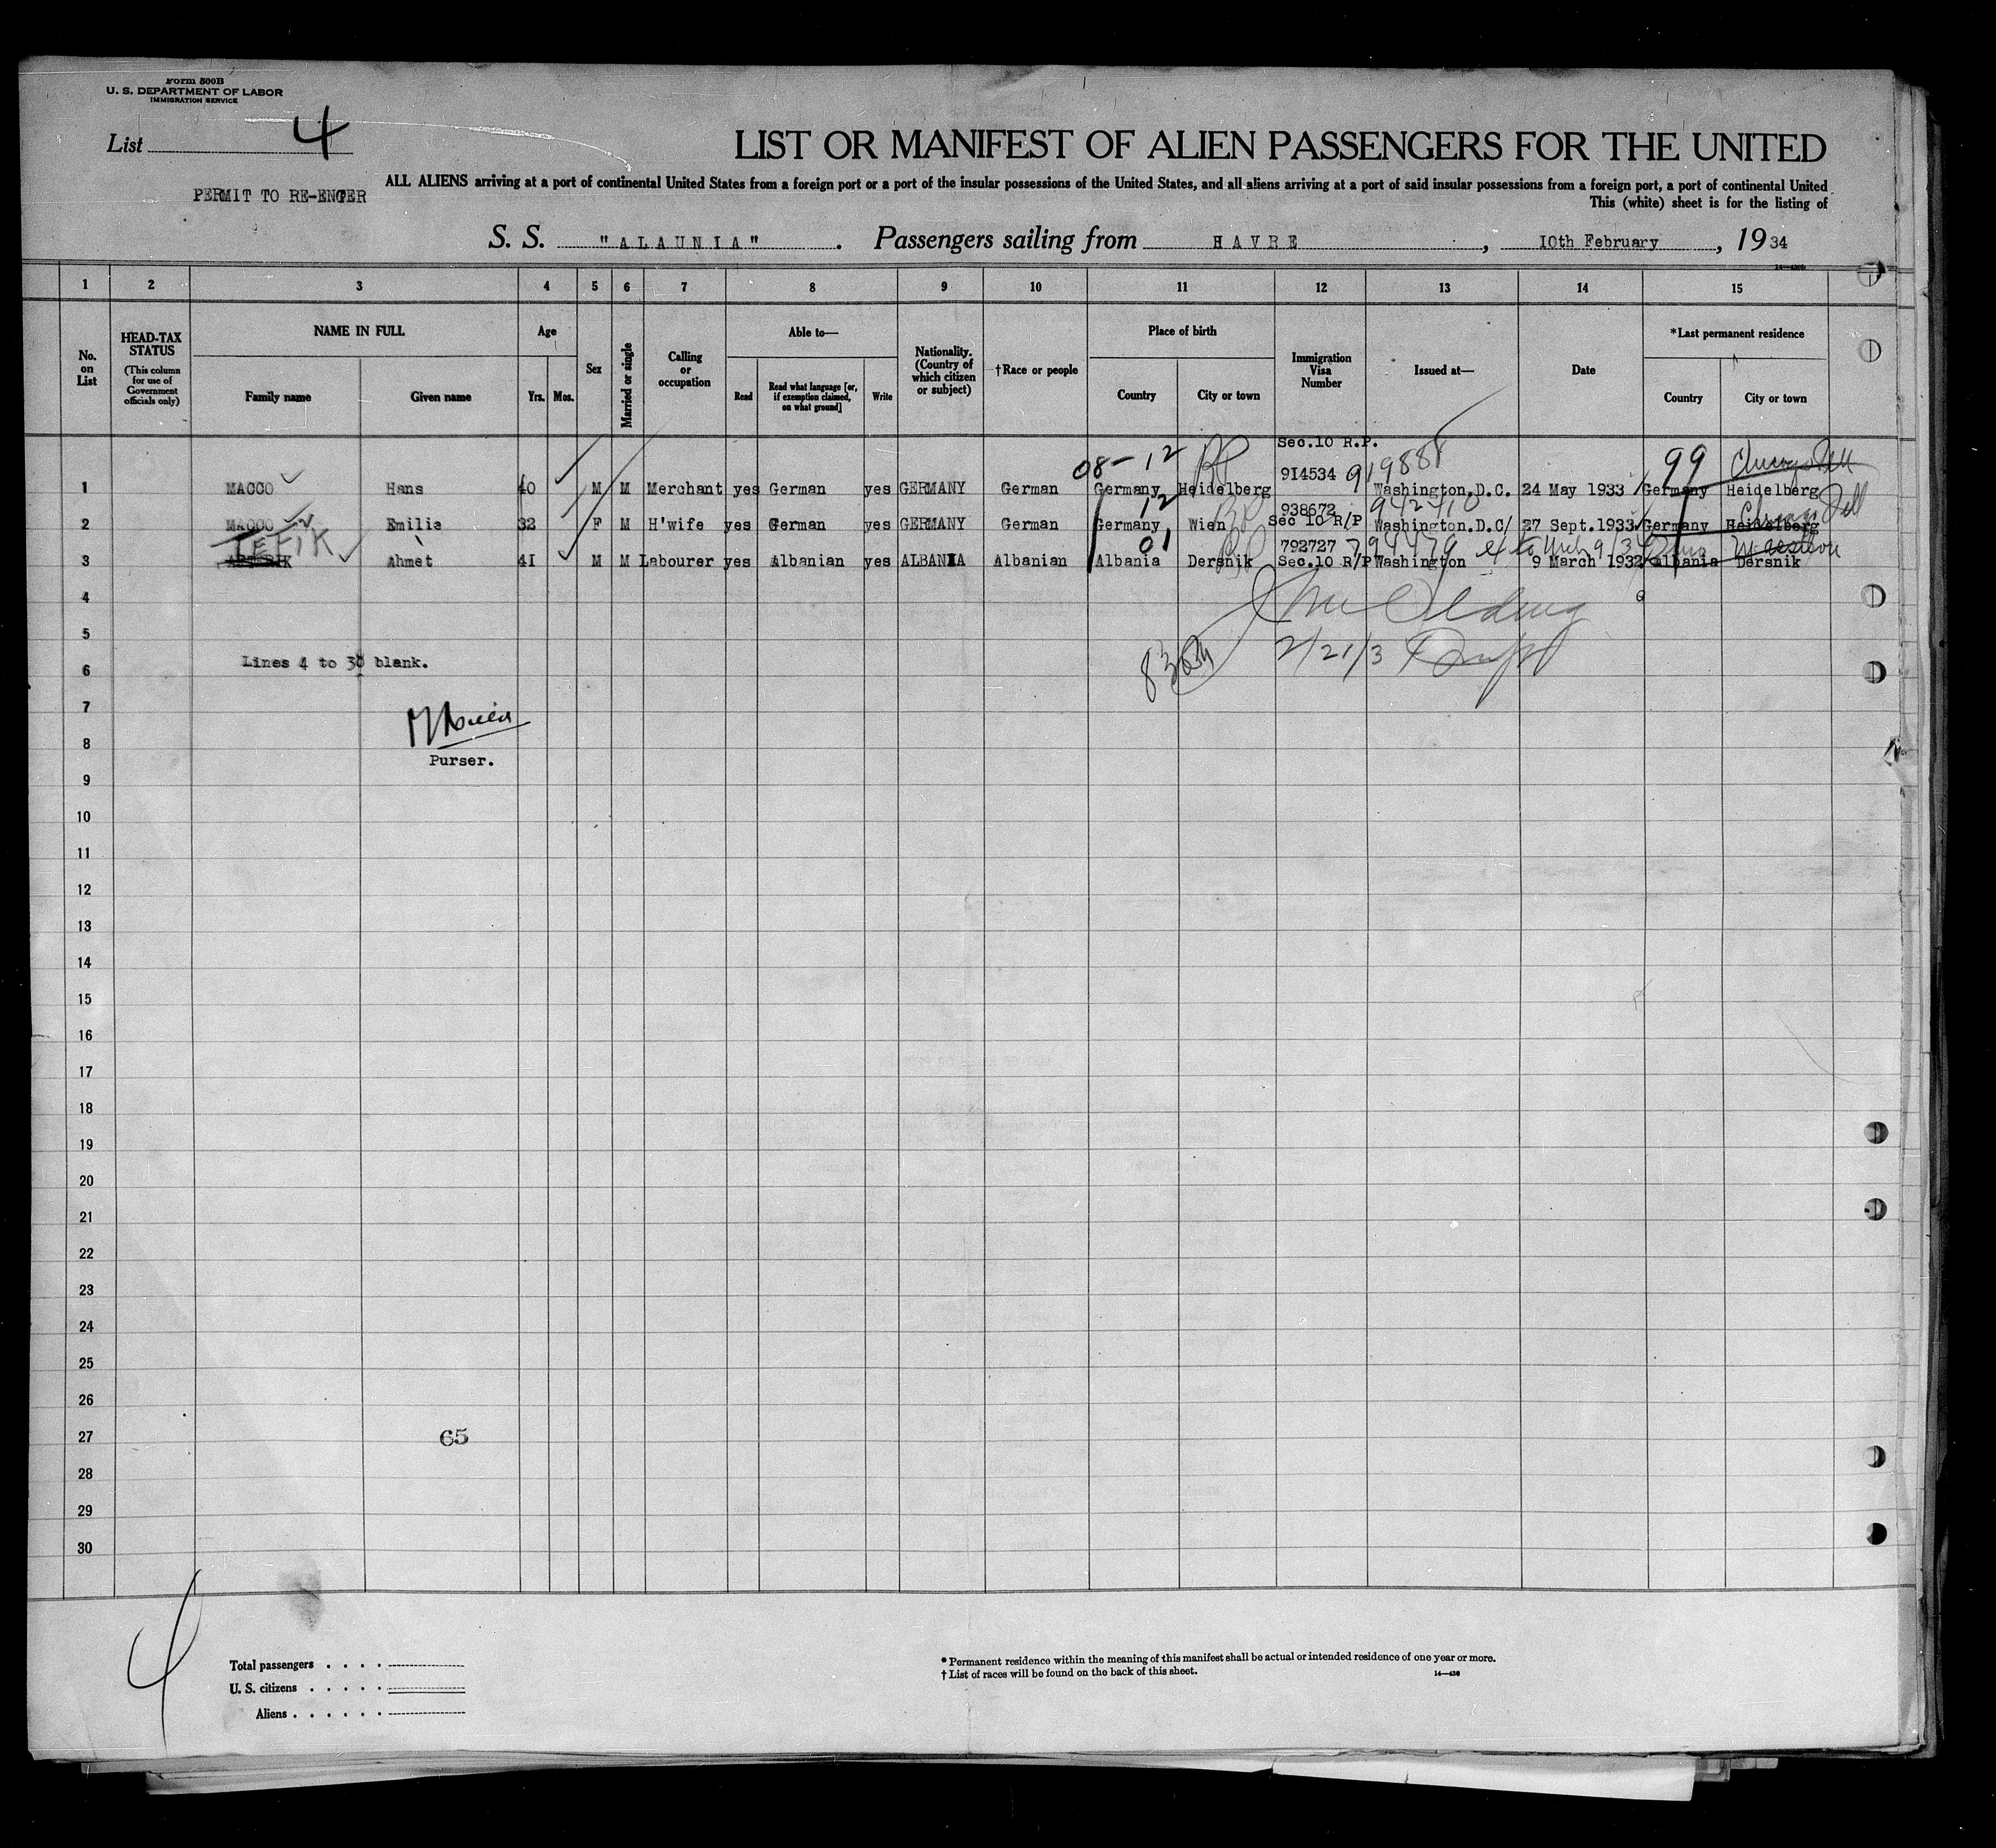 Form 500B
U. S. DEPARTMENT OF LABOR
IMMIGRATION SERVICE
List 4
LIST OR MANIFEST OF ALIEN PASSENGERS FOR THE UNITED
PERMIT TO RE-ENTER
ALL ALIENS arriving at a port of continental United States from a foreign port or a port of the insular possessions of the United States, and all aliens arriving at a port of said insular possessions from a foreign port, a port of continental United
This (white) sheet is for the listing of
S. S. "ALAUNIA". Passengers sailing from HAVRE, 10th February, 1934
1 2 3 4 5 6 7 8 9 10 11 12 13 14 15
No. on List
HEAD-TAX STATUS
(This column for use of Government officials only)
NAME IN FULL
Family name
Given name
Age
Yrs. Mos.
Sex
Married or single
Calling or occupation
Able to—
Read
Read what language [or, if exemption claimed, on what ground]
Write
Nationality. (Country of which citizen or subject)
†Race or people
Place of birth
Country
City or town
Immigration Visa Number
Issued at—
Date
*Last permanent residence
Country
City or town
Sec.10 R.P.
08-12 RP 914534 919888 99 Chicago Ill
1 MACCO Hans 40 M M Merchant yes German yes GERMANY German Germany Heidelberg Washington.D.C. 24 May 1933 Germany Heidelberg
12 RP 938672 942410 Chicago Ill
2 MACCO Emilie 32 F M H'wife yes German yes GERMANY German Germany Wien Sec 10 R/P Washington.D.C/ 27 Sept.1933 Germany Heidelberg
TEFIK 01 RP 792727 794479
3 Ahmet 41 M M Labourer yes Albanian yes ALBANIA Albanian Albania Dersnik Sec.10 R/P Washington 9 March 1932 Albania Dersnik
4
5
2/21/3
Lines 4 to 30 blank.
6
7
8
Purser.
9
10
11
12
13
14
15
16
17
18
19
20
21
22
23
24
25
26
27 65
28
29
30
4
Total passengers . . . .
U. S. citizens . . . . .
Aliens . . . . . .
* Permanent residence within the meaning of this manifest shall be actual or intended residence of one year or more.
† List of races will be found on the back of this sheet.
14—430